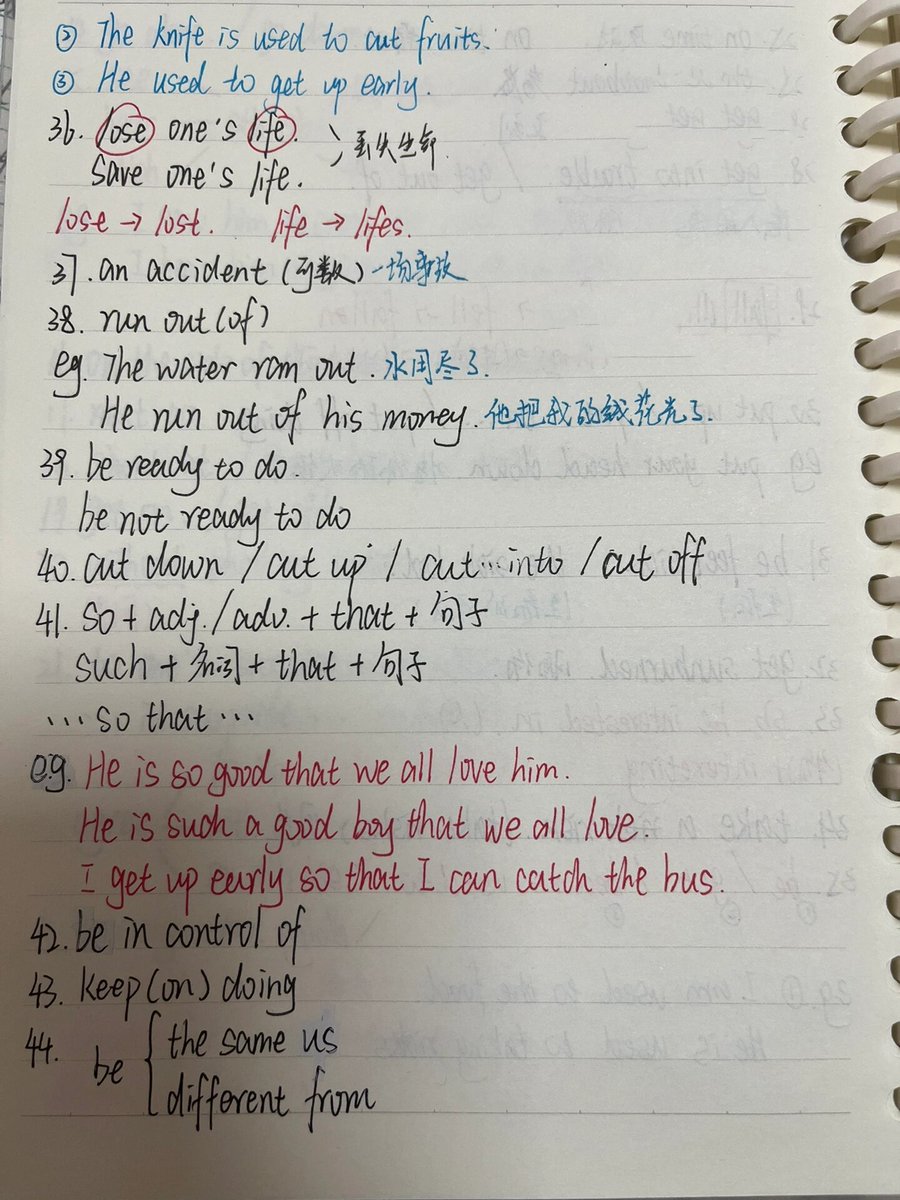 ② The knife is used to cut fruits.
③ He used to get up early.
36. lose one's life. 丢失生命
save one's life.
lose → lost. life → lifes.
37. an accident (可数) 一场事故
38. run out (of)
eg. The water ram out. 水用尽了.
He run out of his money. 他把我的钱花光了.
39. be ready to do.
be not ready to do
40. cut down / cut up / cut...into / cut off
41. so + adj. / adv. + that + 句子
such + 名词 + that + 句子
... so that ...
e.g. He is so good that we all love him.
He is such a good boy that we all love.
I get up early so that I can catch the bus.
42. be in control of
43. keep (on) doing
44. be { the same us
different from